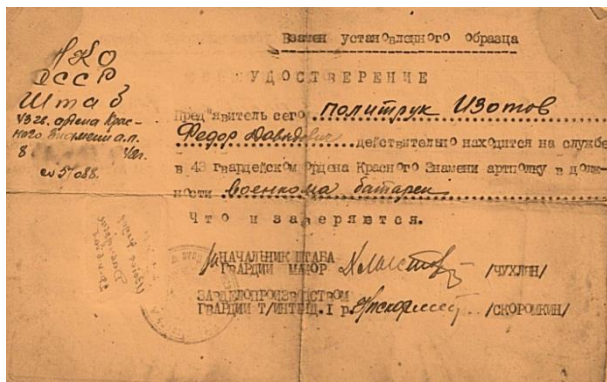 Взамен установленного образца
НКО
СССР
Штаб
43 гв. ордена Крас-
ного Знамени а.п.
8
№ 5/088.
УДОСТВЕРЕНИЕ
Пред"явитель сего политрук Изотов
Федор Давидович действительно находится на службе
в 43 гвардейском Ордена Красного Знамени артполку в долж-
ности военкома батареи
Что и заверяется.
НАЧАЛЬНИК ШТАБА
ГВАРДИИ МАЙОР /ЧУХЛЯН/
ЗАВДЕЛОПРОИЗВОДСТВОМ
ГВАРДИИ Т/ИНТЕНД. I р. /СКОРОМКИН/